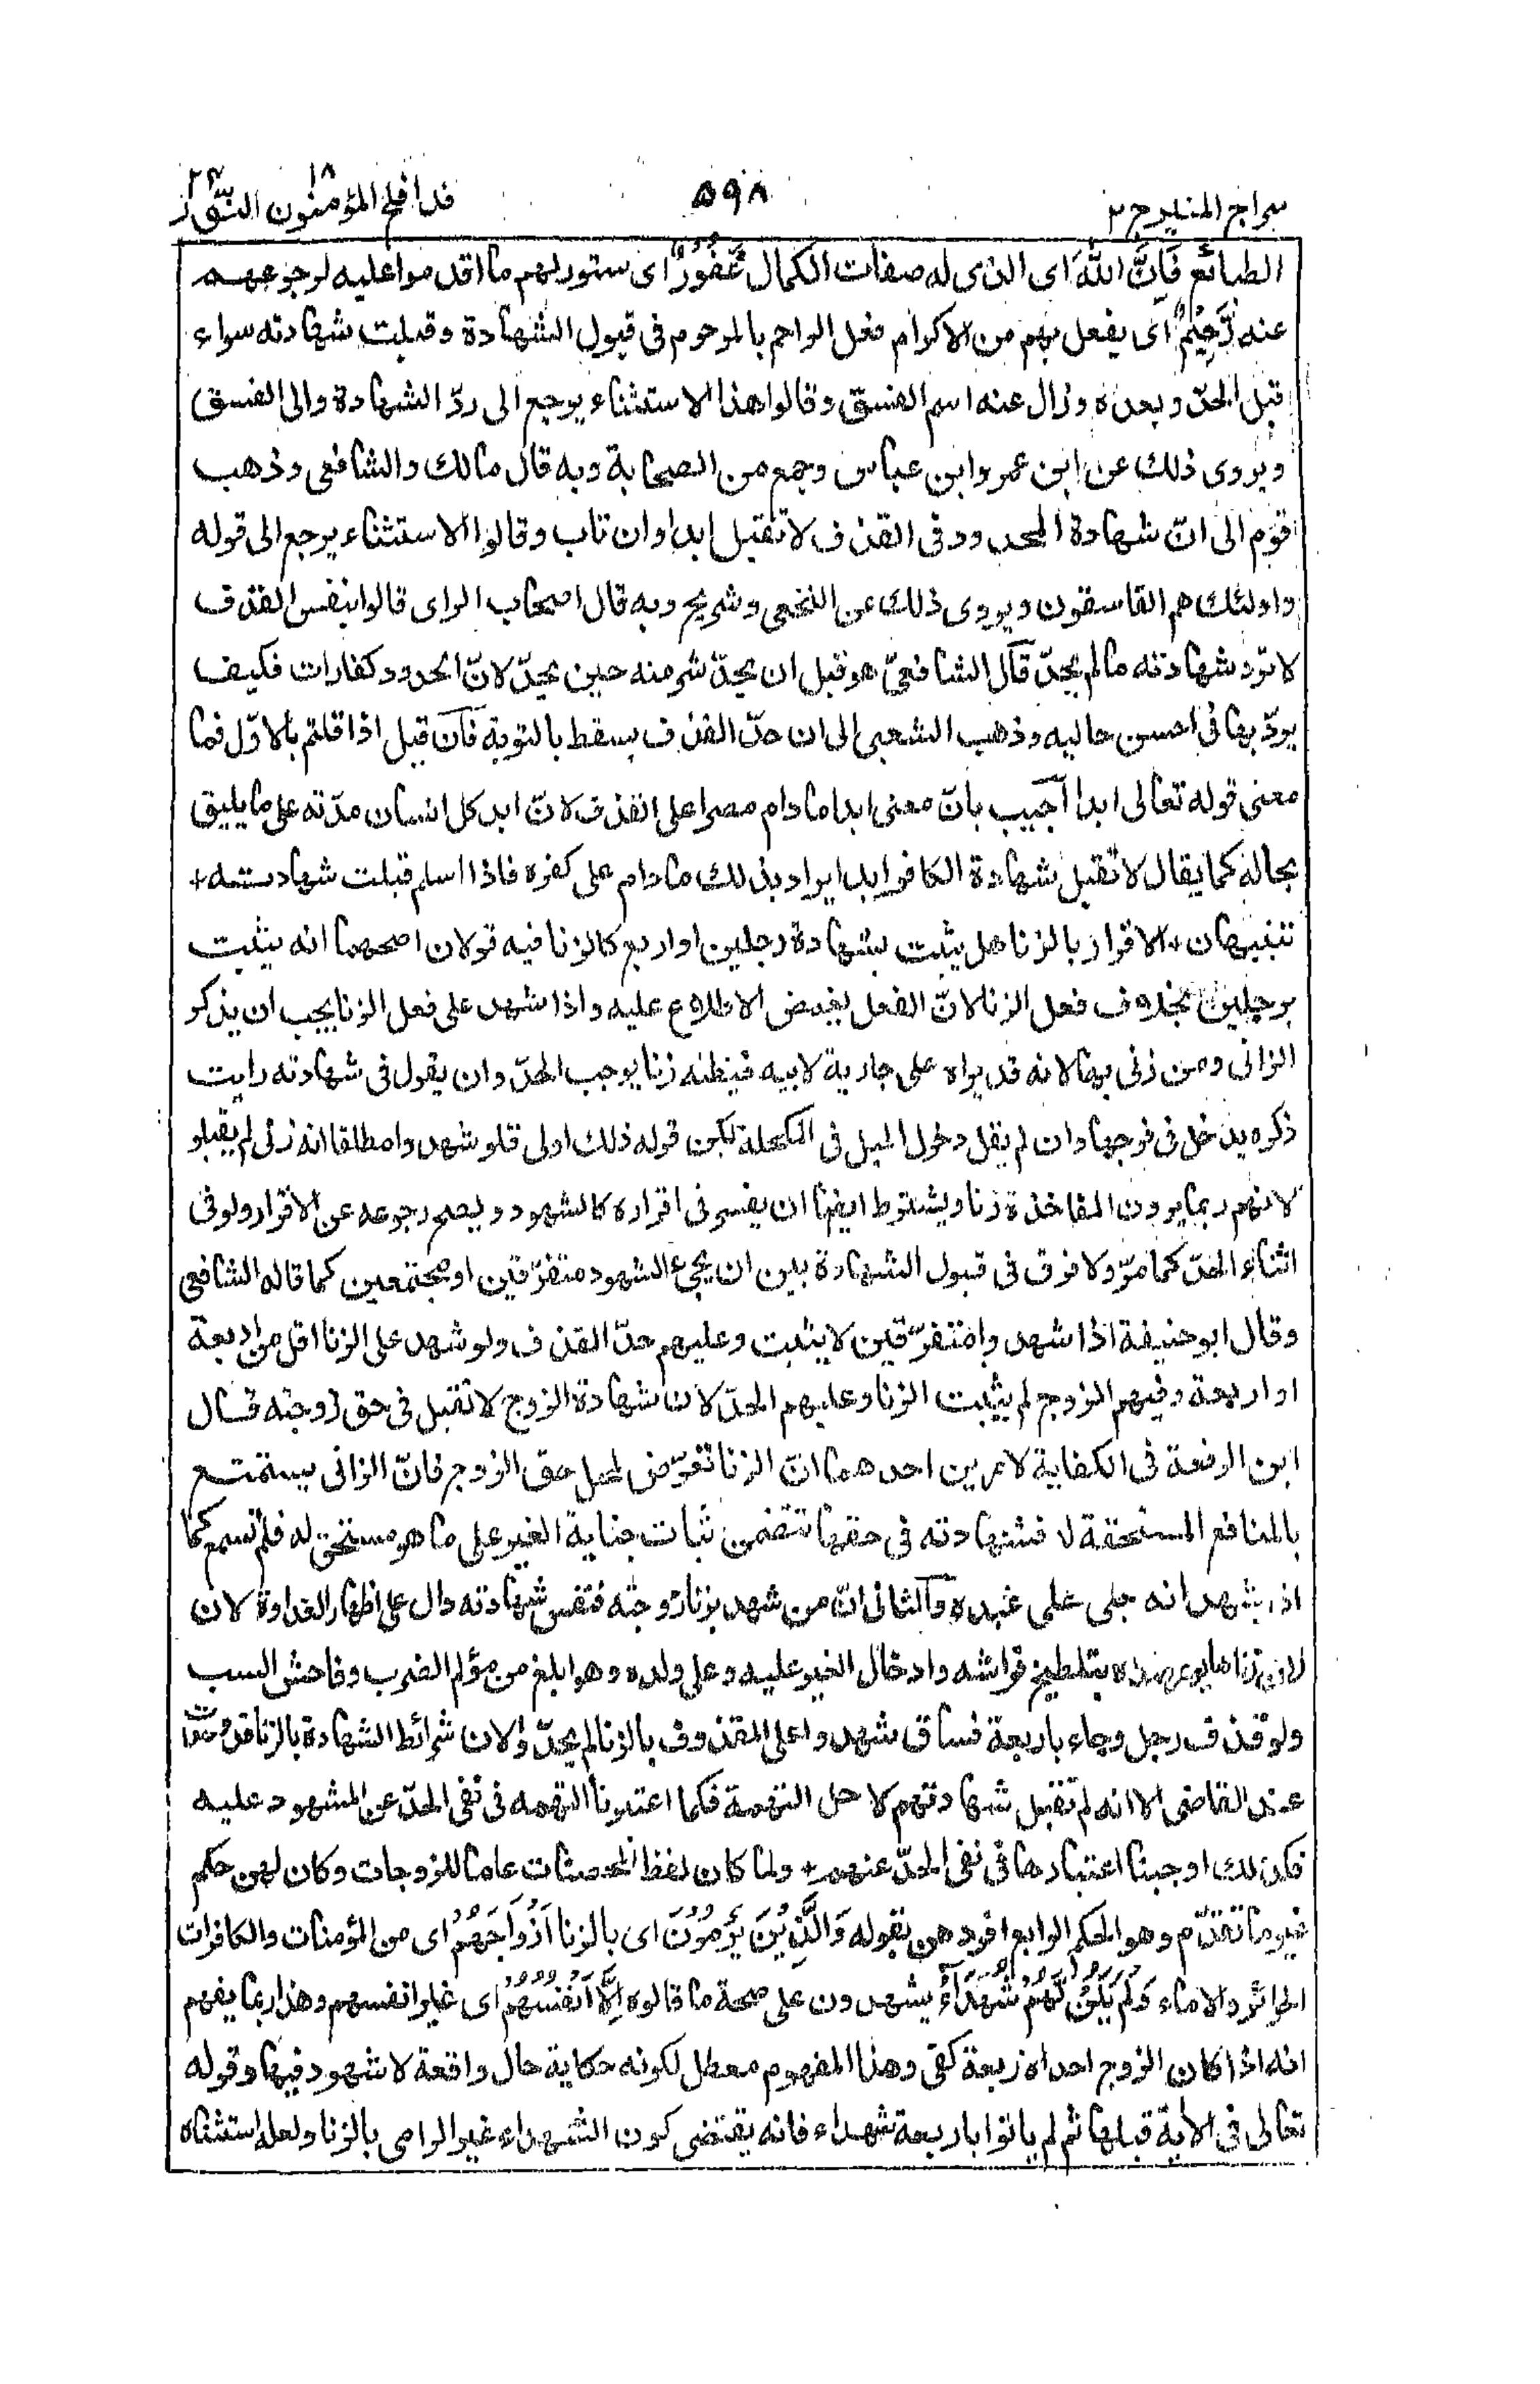 سراج المنير ج ٢
٥٩٨
قد افلح المؤمنون ١٨ النور ٢٤
الطبائع فَاِنَّ اللّٰهَ اى الذى له صفات الكمال غَفُوْرٌ اى ستور لهم ما اقدموا عليه لرجوعهم
عنه رَّحِيْمٌ اى يفعل بهم من الاكرام فعل الراحم بالمرحوم فى قبول الشهادة وقبلت شهادته سواء
قبل الحدّ وبعده وزال عنه اسم الفسق وقالوا هذا الاستثناء يرجع الى ردّ الشهادة والى الفسق
ويروى ذلك عن ابن عمر وابن عباس وجمع من الصحابة وبه قال مالك والشافعى وذهب
قوم الى انّ شهادة المحدود فى القذف لا تقبل ابدا وان تاب وقالوا الاستثناء يرجع الى قوله
واولئك هم الفاسقون ويروى ذلك عن النخعى وشريح وبه قال اصحاب الراى قالوا بنفس القذف
لا تردّ شهادته ما لم يحدّ قال الشافعىّ هو قبل ان يحدّ شر منه حين يحدّ لانّ الحدود كفارات فكيف
يردّ بها فى احسن حاليه وذهب الشعبى الى ان حدّ القذف يسقط بالتوبة فان قيل اذا قلتم بالاوّل فما
معنى قوله تعالى ابدا اجيب بانّ معنى ابدا ما دام مصرا على القذف لانّ ابد كل انسان مدّته على ما يليق
بحاله كما يقال لا تقبل شهادة الكافر ابدا يراد بذلك ما دام على كفره فاذا اسلم قبلت شهادته +
تنبيهان + الاقرار بالزنا هل يثبت بشهادة رجلين او اربع كالزنا فيه قولان اصحهما انه يثبت
برجلين بخلاف فعل الزنا لانّ الفعل يغمض الاطلاع عليه واذا شهد على فعل الزنا يجب ان يذكر
الزانى ومن زنى بها لانه قد يراه على جارية لابيه فيظنه زنا يوجب الحدّ وان يقول فى شهادته رايت
ذكره يدخل فى فرجها وان لم يقل دخول الميل فى المكحلة لكن قوله ذلك اولى فلو شهدوا مطلقا انه زنى لم يقبلو
لانهم ربما يرون المفاخذة زنا ويشترط ايضا ان يفسر فى اقراره كالشهود ويصح رجوعه عن الاقرار ولو فى
اثناء الحدّ كما مرّ ولا فرق فى قبول الشهادة بين ان يجىء الشهود متفرّقين او مجتمعين كما قاله الشافعى
وقال ابو حنيفة اذا شهدوا متفرّقين لا يثبت وعليهم حدّ القذف ولو شهد على الزنا اقل من اربعة
او اربعة وفيهم الزوج لم يثبت الزنا وعليهم الحدّ لان شهادة الزوج لا تقبل فى حق زوجته قال
ابن الرفعة فى الكفاية لامرين احدهما انّ الزنا تعرّض لمحل حق الزوج فانّ الزانى يستمتع
بالمنافع المستحقة له فشهادته فى حقها تتضمن ثبات جناية الغير على ما هو مستحق له فلم تسمع كما
اذا شهد انه جنى على عبده والثانى انّ من شهد بزنا زوجته فنفس شهادته دال على اظهار العداوة لان
زناها يوعر صدره بتلطيخ فراشه وادخال الغير عليه وعلى ولده وهو ابلغ من مؤلم الضرب وفاحش السب
ولو قذف رجل وجاء باربعة فساق شهدوا على المقذوف بالزنا لم يحدّوا لان شرائط الشهادة بالزنا قد وجدت
عند القاضى الا انه لم تقبل شهادتهم لاجل التهمة فكما اعتبرنا التهمه فى نفى الحدّ عن المشهود عليه
فكذلك اوجبنا اعتبارها فى نفى الحدّ عنهم + ولما كان لفظ المحصنات عاما للزوجات وكان لهن حكم
غير ما تقدّم وهو الحكم الرابع افردهن بقوله وَالَّذِيْنَ يَرْمُوْنَ اى بالزنا اَزْوَاجَهُمْ اى من المؤمنات والكافرات
الحرائر والاماء وَلَمْ يَكُنْ لَّهُمْ شُهَدَآءُ يشهدون على صحة ما قالوه اِلَّآ اَنْفُسُهُمْ اى غير انفسهم وهذا ربما يفهم
انه اذا كان الزوج احد الاربعة كفى وهذا المفهوم معطل لكونه حكاية حال واقعة لا شهود فيها وقوله
تعالى فى الاية قبلها ثم لم ياتوا باربعة شهداء فانه يقتضى كون الشهداء غير الرامى بالزنا ولعله استثناه